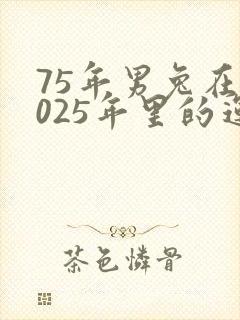 75年男兔在
025年里的运
茶色憐骨